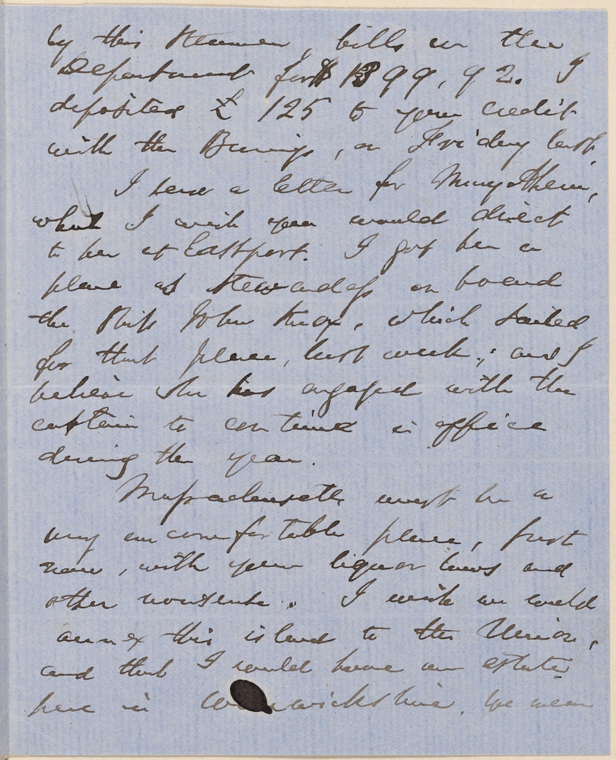 by this Steamer, bills on the
Department for $1399,92. I
deposited £125 to your credit
with the Barings, on Friday last.
I send a letter for Mary Ahern,
what I wish you would direct
to her at Eastport. I got her a
place as Stewardess on board
the Ship John Knox, which sailed
for that place, last week; and I
believe she has engaged with the
captain to continue in office
during the year.
Massachusetts must be a
very uncomfortable place, just
now, with your liquor laws and
other nonsense. I wish we could
annex this island to the Union,
and that I could have an estate
here in Warwickshire. We mean